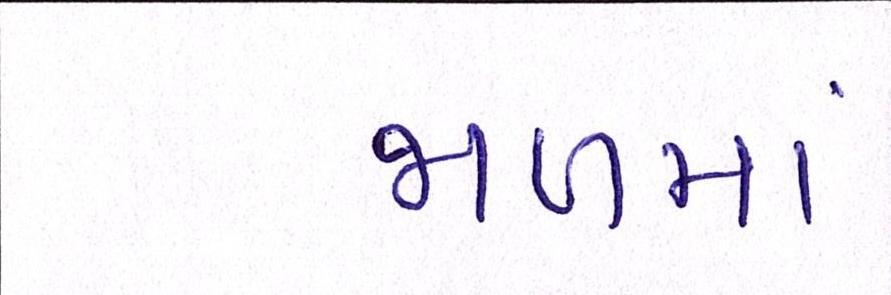 જાળમાં